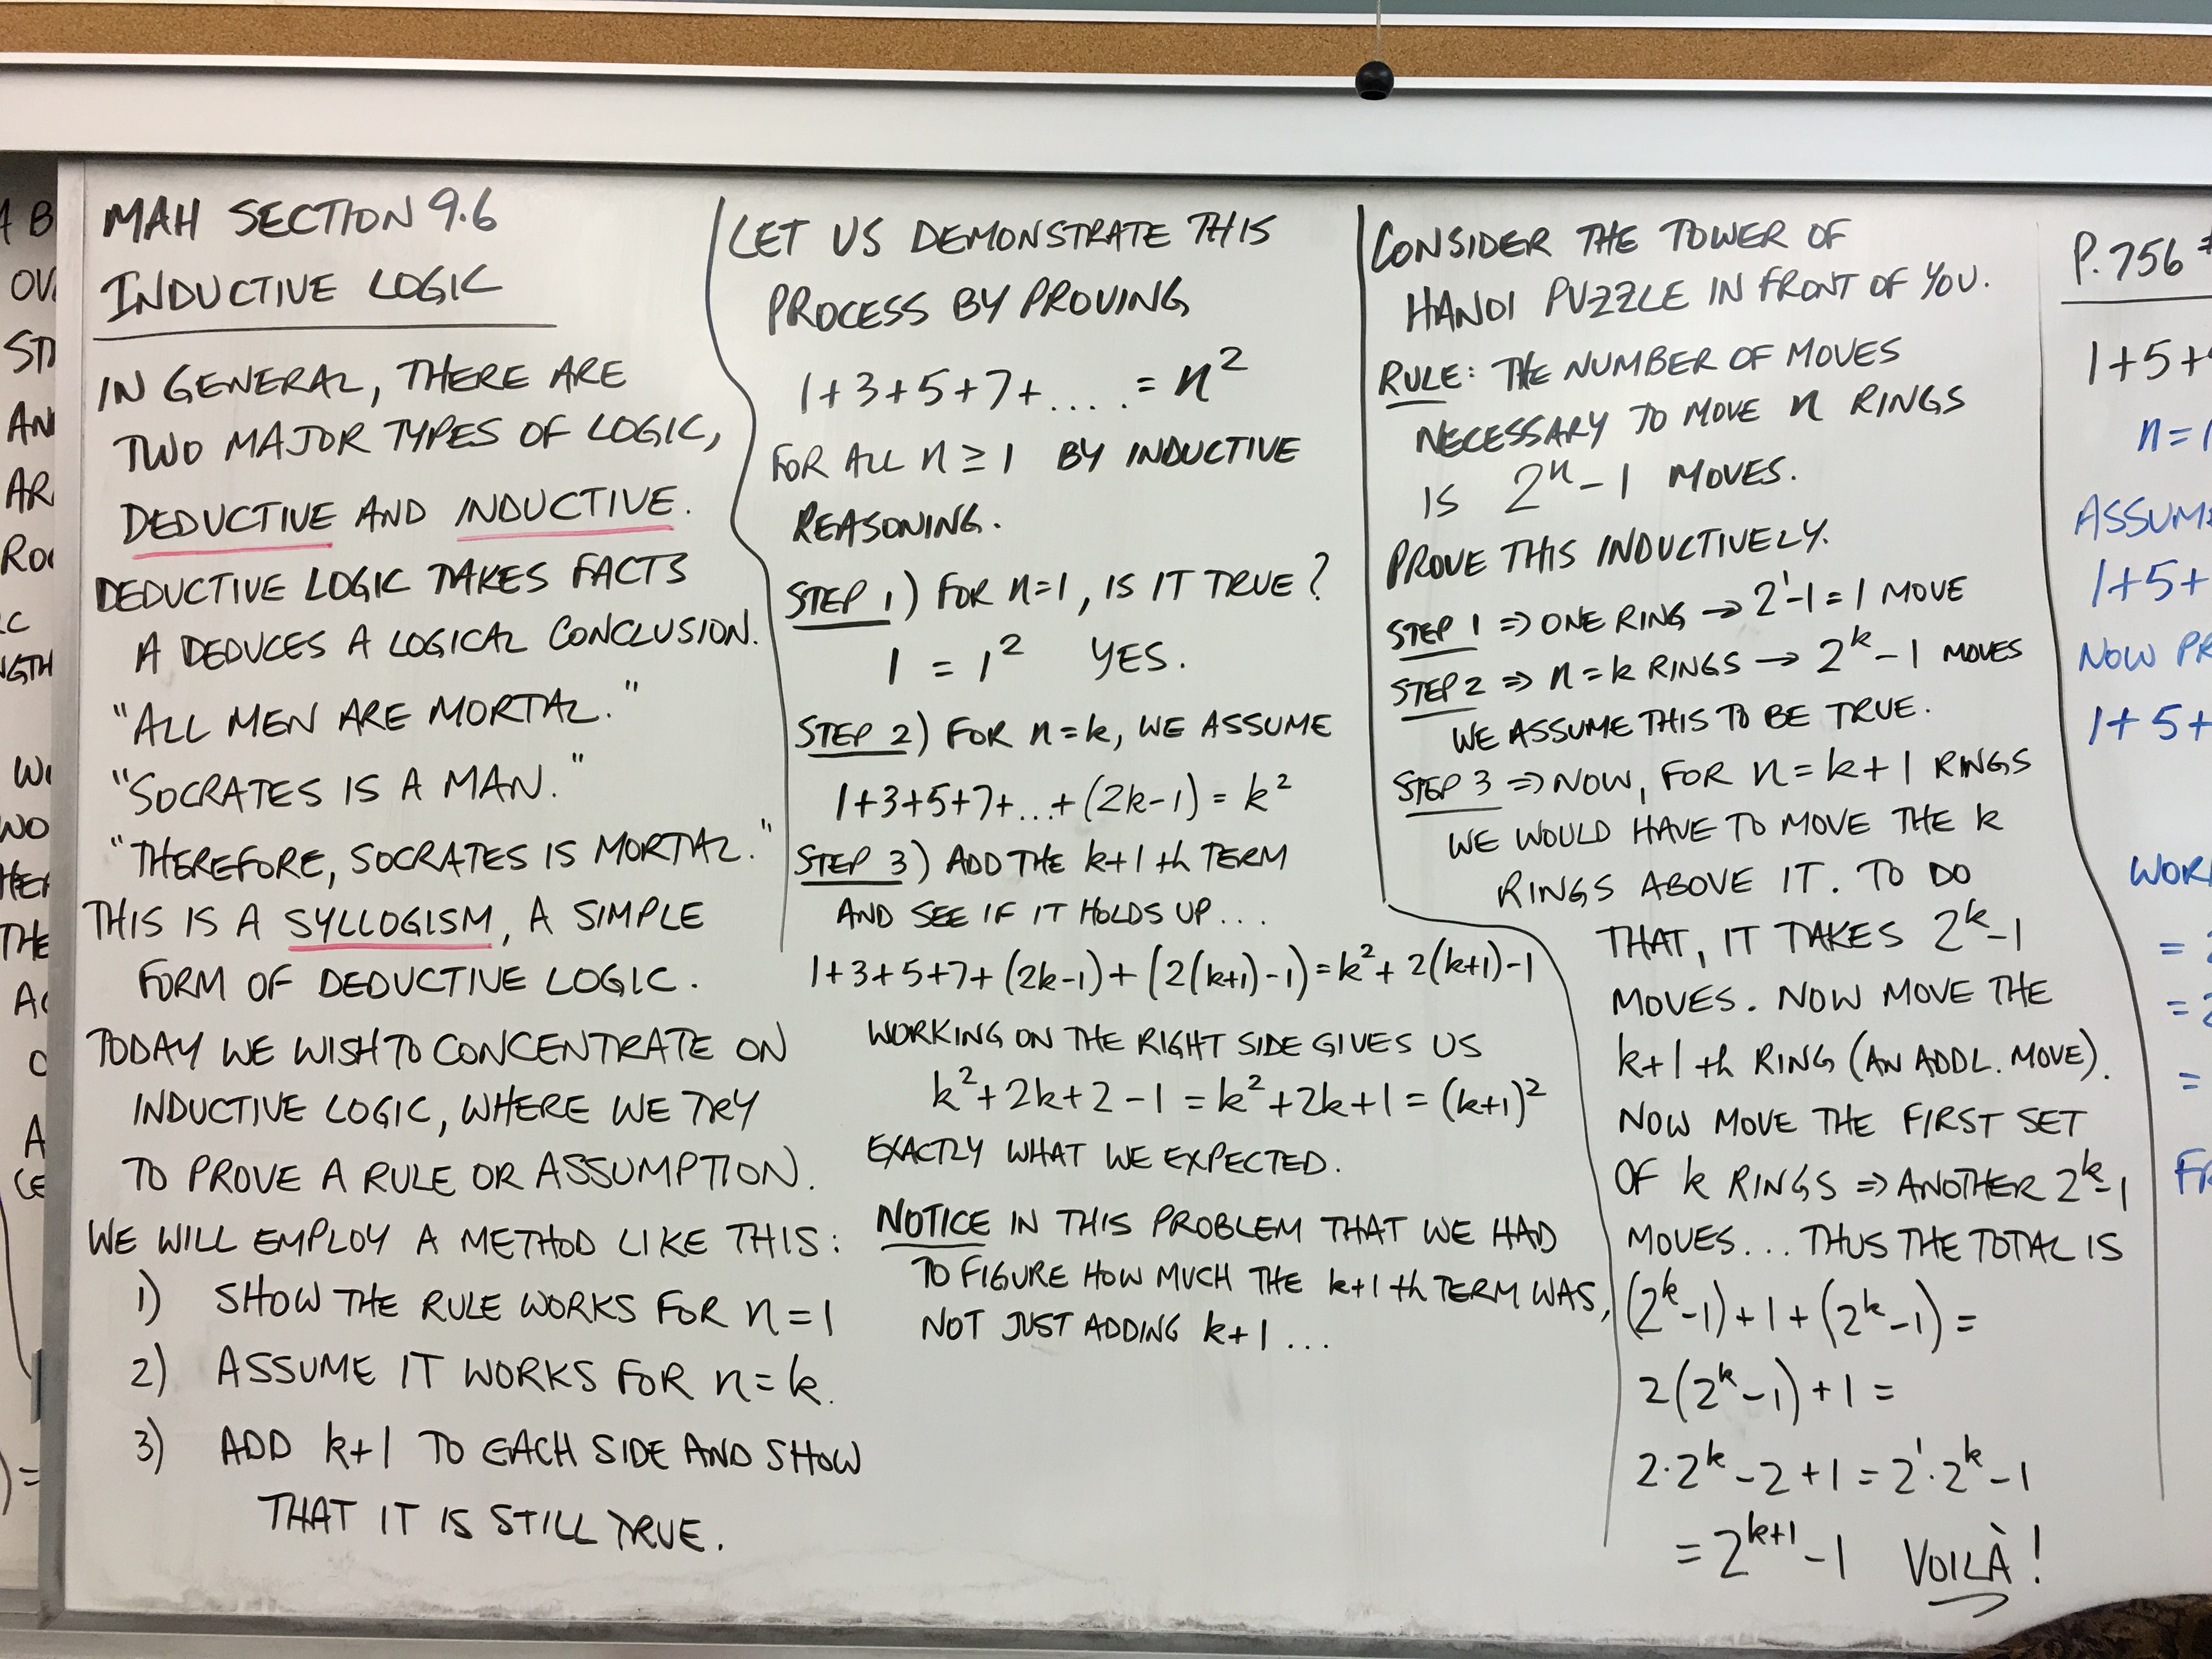 MAH SECTION 9.6
INDUCTIVE LOGIC
IN GENERAL, THERE ARE
TWO MAJOR TYPES OF LOGIC,
DEDUCTIVE AND INDUCTIVE.
DEDUCTIVE LOGIC TAKES FACTS
A DEDUCES A LOGICAL CONCLUSION.
"ALL MEN ARE MORTAL."
"SOCRATES IS A MAN."
"THEREFORE, SOCRATES IS MORTAL."
THIS IS A SYLLOGISM, A SIMPLE
FORM OF DEDUCTIVE LOGIC.
TODAY WE WISH TO CONCENTRATE ON
INDUCTIVE LOGIC, WHERE WE TRY
TO PROVE A RULE OR ASSUMPTION.
WE WILL EMPLOY A METHOD LIKE THIS:
1) SHOW THE RULE WORKS FOR n=1
2) ASSUME IT WORKS FOR n=k.
3) ADD k+1 TO EACH SIDE AND SHOW
THAT IT IS STILL TRUE.
LET US DEMONSTRATE THIS
PROCESS BY PROVING
1+3+5+7+.....=n²
FOR ALL n≥1 BY INDUCTIVE
REASONING.
STEP 1) FOR n=1, IS IT TRUE?
1 = 1² YES.
STEP 2) FOR n=k, WE ASSUME
1+3+5+7+...+(2k-1) = k²
STEP 3) ADD THE k+1 th TERM
AND SEE IF IT HOLDS UP...
1+3+5+7+(2k-1)+(2(k+1)-1)=k²+2(k+1)-1
WORKING ON THE RIGHT SIDE GIVES US
k²+2k+2-1=k²+2k+1=(k+1)²
EXACTLY WHAT WE EXPECTED.
NOTICE IN THIS PROBLEM THAT WE HAD
TO FIGURE HOW MUCH THE k+1 th TERM WAS,
NOT JUST ADDING k+1...
CONSIDER THE TOWER OF
HANOI PUZZLE IN FRONT OF YOU.
RULE: THE NUMBER OF MOVES
NECESSARY TO MOVE n RINGS
IS 2ⁿ-1 MOVES.
PROVE THIS INDUCTIVELY.
STEP 1 ⇒ ONE RING → 2¹-1=1 MOVE
STEP 2 ⇒ n=k RINGS → 2ᵏ-1 MOVES
WE ASSUME THIS TO BE TRUE.
STEP 3 ⇒ NOW, FOR n=k+1 RINGS
WE WOULD HAVE TO MOVE THE k
RINGS ABOVE IT. TO DO
THAT, IT TAKES 2ᵏ-1
MOVES. NOW MOVE THE
k+1 th RING (AN ADDL. MOVE).
NOW MOVE THE FIRST SET
OF k RINGS ⇒ ANOTHER 2ᵏ-1
MOVES... THUS THE TOTAL IS
(2ᵏ-1)+1+(2ᵏ-1)=
2(2ᵏ-1)+1=
2·2ᵏ-2+1=2¹·2ᵏ-1
=2ᵏ⁺¹-1 VOILÀ!
P.756
1+5+
n=1
ASSUME
1+5+
NOW PR
1+5+
WOR
=
=
=